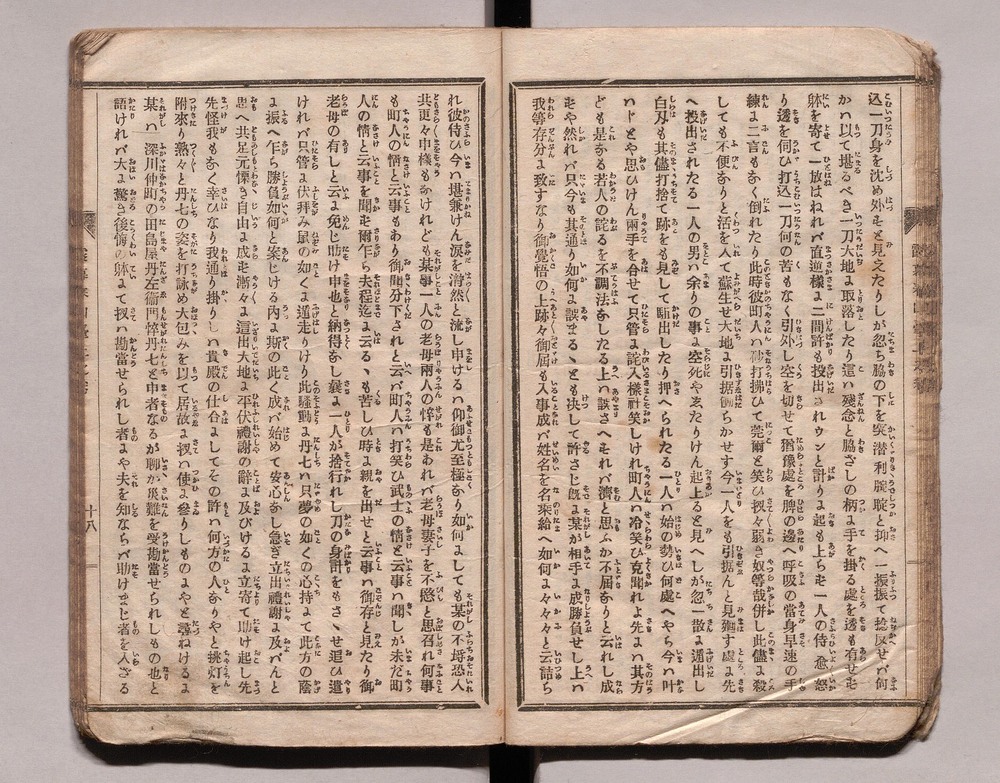 込一刀身を沈め外と見えたりしが忽ち脇の下を突潜利腕聢と抑へ一振振て捻反せバ何
かハ以て堪るべき一刀大地よ取落したり這ハ残念と脇ざしの柄よ手を掛る處を透も有せモ
躰を寄て一放はねれバ直逆樣よ二間許も投出されウンと計りよ起も上らモ一人の侍ハ愈怒
り透を伺ひ打込一刀何の苦もなく引外し空を切せて猶豫處を脾の邊へ呼吸の當身早速の手
練よ二言もなく倒れたり此時彼町人ハ砂打拂ひて莞爾と笑ひ扨々弱き奴等哉併し此儘よ殺
しても不便なりと活を入て蘇生せ大地よ引据働ちかせず今一人をも引据んと見廻す處よ先
へ投出されたる一人の男ハ余りの事よ空死やまたりけん起上ると見へしが忽一散よ逃出し
白刃も其儘打捨て跡をも見せして駈出したり押へられたる一人ハ始の勢ひ何處へやら今ハ叶
ハトとや思ひけん兩手を合せて只管よ詫入樣社笑しけれ町人ハ冷笑ひ克聞れよ先よハ其方
ども是なる若人の詫るを不調法なしたる上ハ談さへそれバ濟と思ふか不屆なりと云れし成
モや然れバ只今も其通り如何よ誤まるヽとも决して許さじ既よ某が相手よ成勝負せし上ハ
我等存分よ致すなり御覺悟の上跡々御屆も入事成バ姓名を名乘給へ如何よ々々々と云詰ら
れ彼侍ひ今ハ堪兼けん涙を潸然と流し申けるハ仰御尤至極なり如何よしても某の不埒恐入
共更々申樣もなけれども某事一人の老母兩人の悴も是あれバ老母妻子を不愍と思召れ何事
も町人の情と云事もあり御聞分下されと云バ町人ハ打笑ひ武士の情と云事ハ聞しが未だ町
人の情と云事を聞モ爾乍ら夫程迄よ云るヽも苦しひ時よ親を出せと云事ハ御存と見たり御
老母の有しと云よ免じ助け申也と納得なし曩よ一人が捨行れし刀の身計をもさヽせ追ひ遣
けれバ只管よ伏拜み鼠の如くよ逃走しけり此騷動よ丹七ハ只夢の如くの心持よて此方の蔭
よ振へ乍ら勝負如何と案じける内よ斯の此く成バ始めて安心なし急ぎ立出禮謝よ及バんと
思へ共足元慄き自由よ成モ漸々よ這出大地よ平伏禮謝の辭よ及びけるよ立寄て助け起し先
先怪我もなく幸ひなり我通り掛りしハ貴殿の仕合よしてその許ハ何方の人なりやと挑灯を
附來り熟々と丹七の姿を打詠め大包みを以て居故よ扨ハ使よ參りしものよやと尋ねけるよ
某ハ深川仲町の田島屋丹左衞門悴丹七と申者なるが聊か災難を受勘當せられしもの也と
語けれバ大よ驚き後悔の躰よて扨ハ勘當せられし者よや夫を知ならバ助けまじ者を人ざる
十八